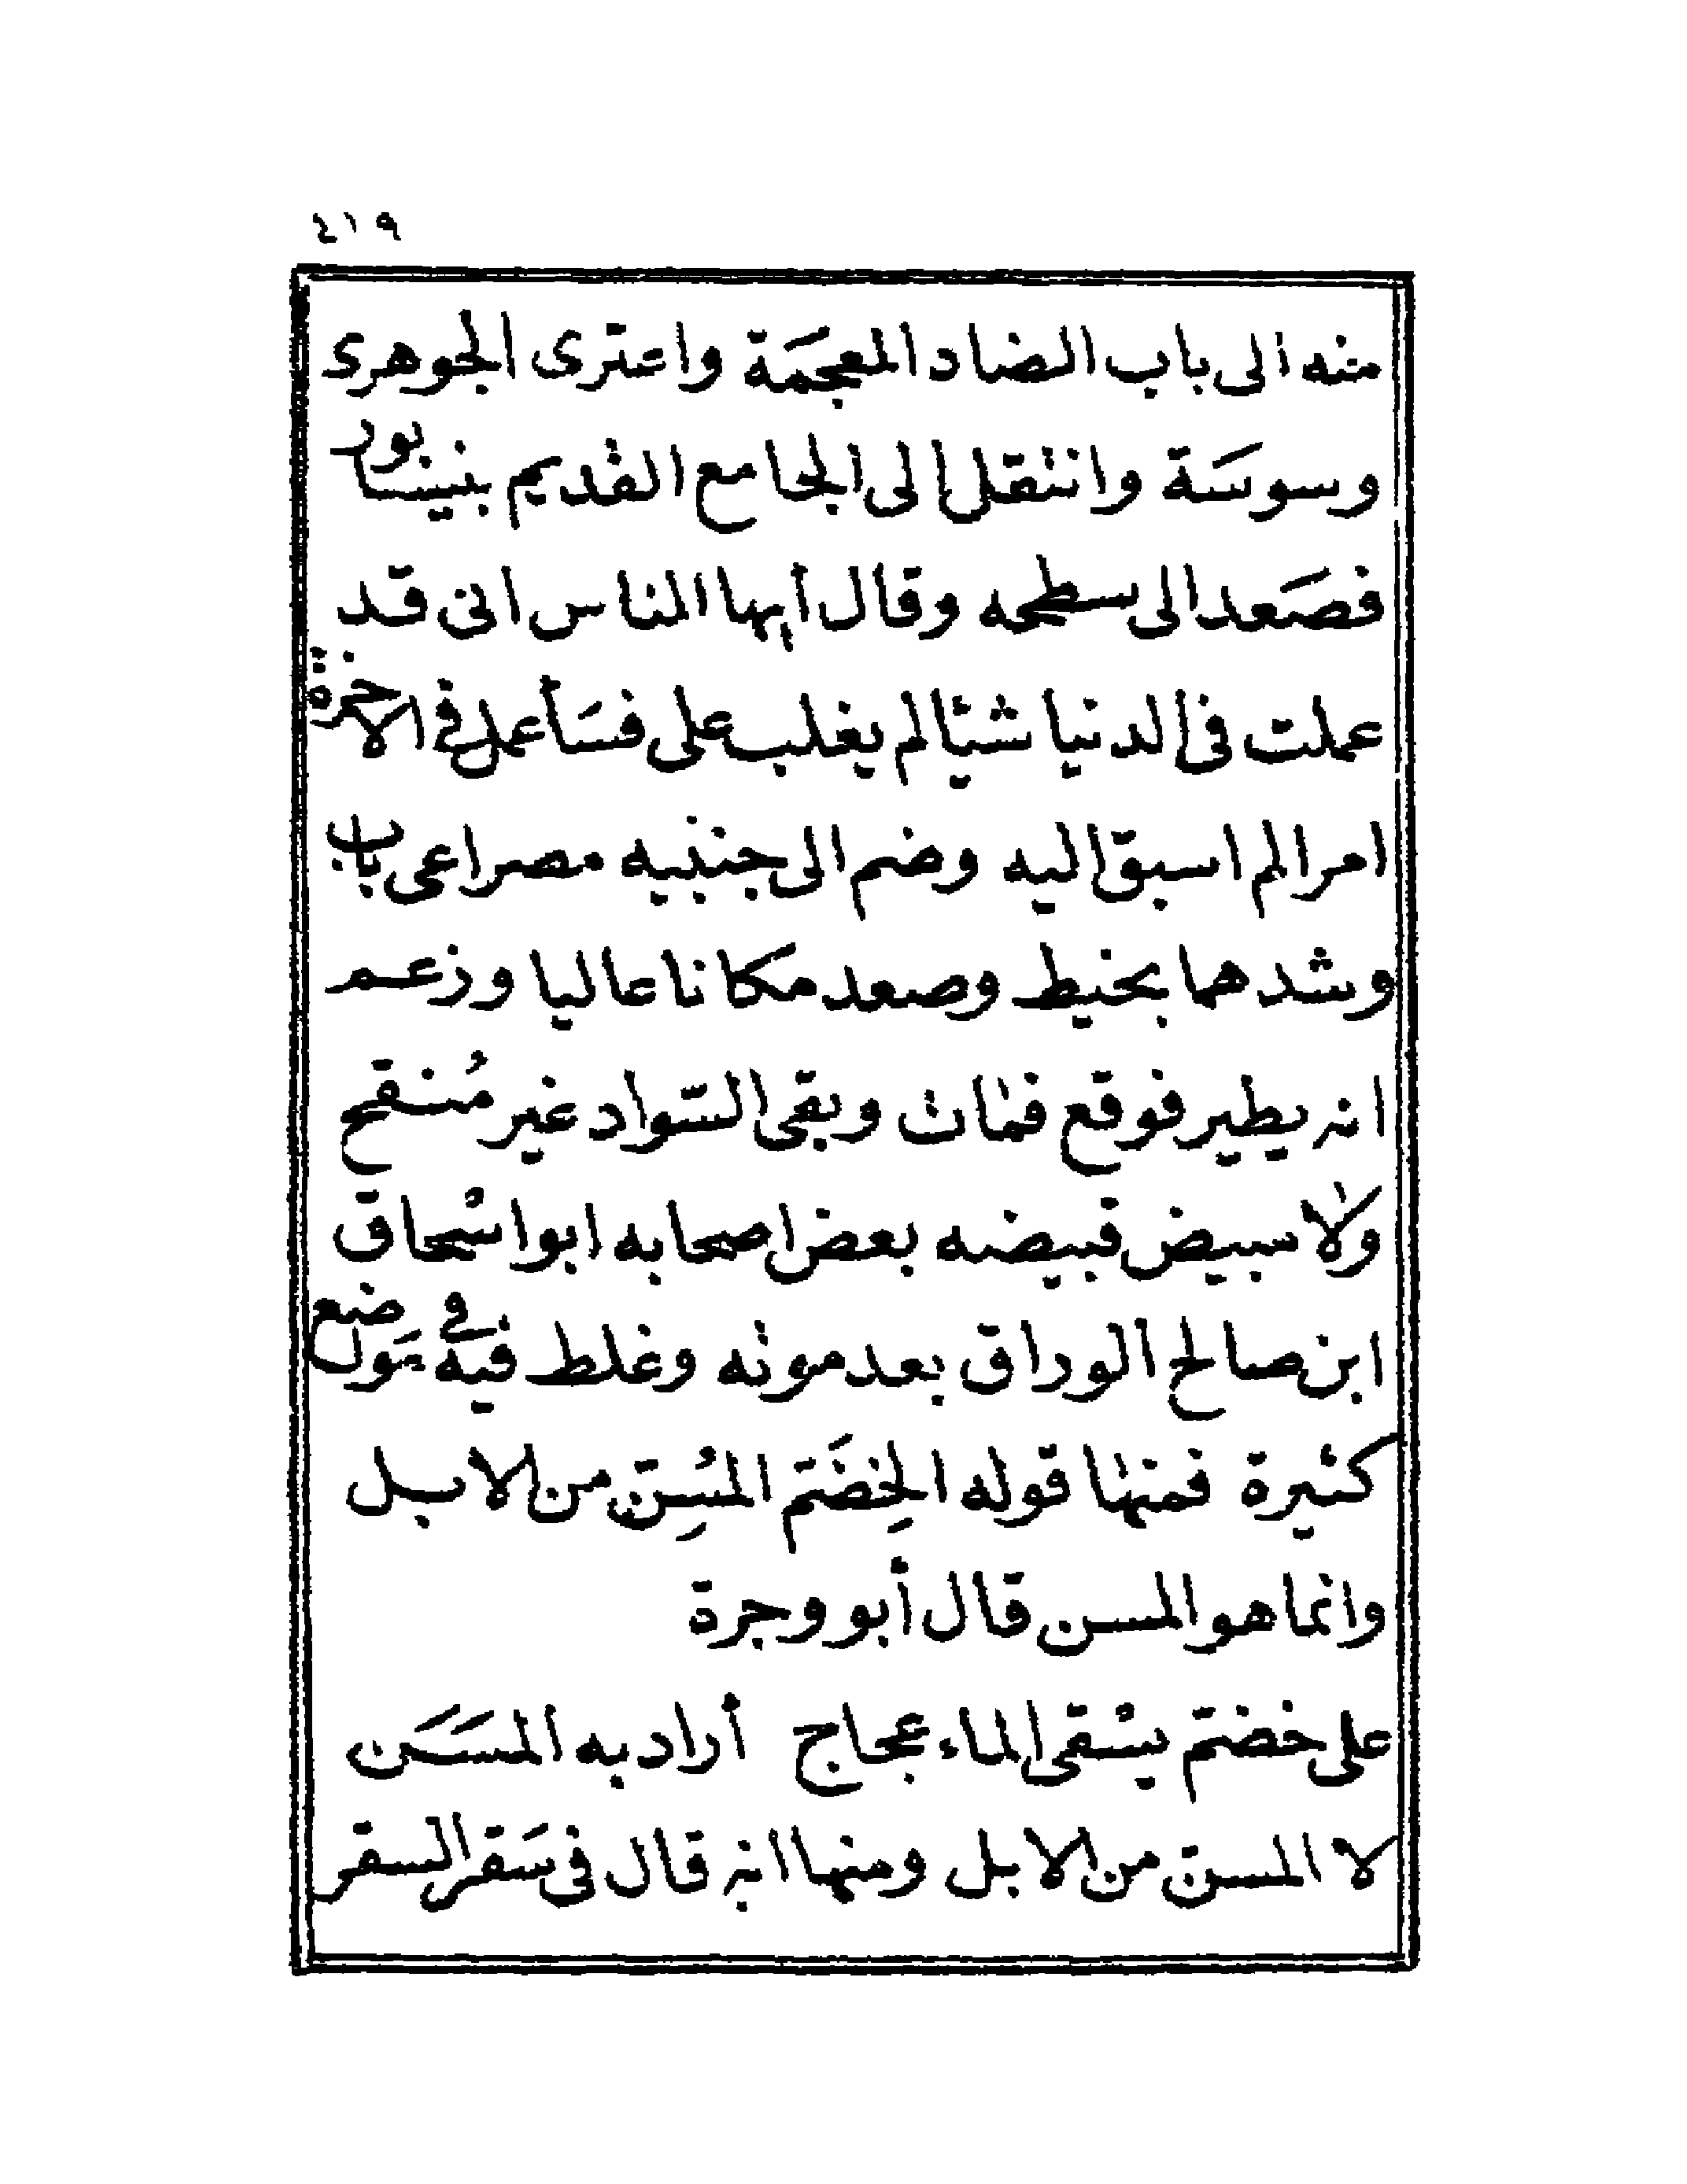 ٤١٩
منه الى باب الضاد المعجمَة واعترى الجوهرى
وسوسَة وانتقل الى الجامع القديم بنيسابور
فصَعد الى سطحه وقال أيها الناس انى قد
عملت فى الدنيا شيًا لم يغلب على فسَأعمل فى الاخرة
امرا لم اسبق اليه وضم الى جنبيه مصراعى باب
وشدهما بخيط وصعد مكانا عاليا وزعم
انه يطير فوقع فمات وبقى السّواد غير مُنقح
ولا مبيض فبيضه بعض اصحابه ابو اسْحاق
ابن صالح الوراق بعد موته وغلط فيه فى مَواضع
كثيرة فمنها قوله الخِضَمّ المُسِنّ من الابل
وانما هو المسن قال أبو وجرة
على خضمّ يسْقى الماء عجاج أراد به المسَن
لا المسنّ من الابل ومنها انه قال فى سَقر السقر